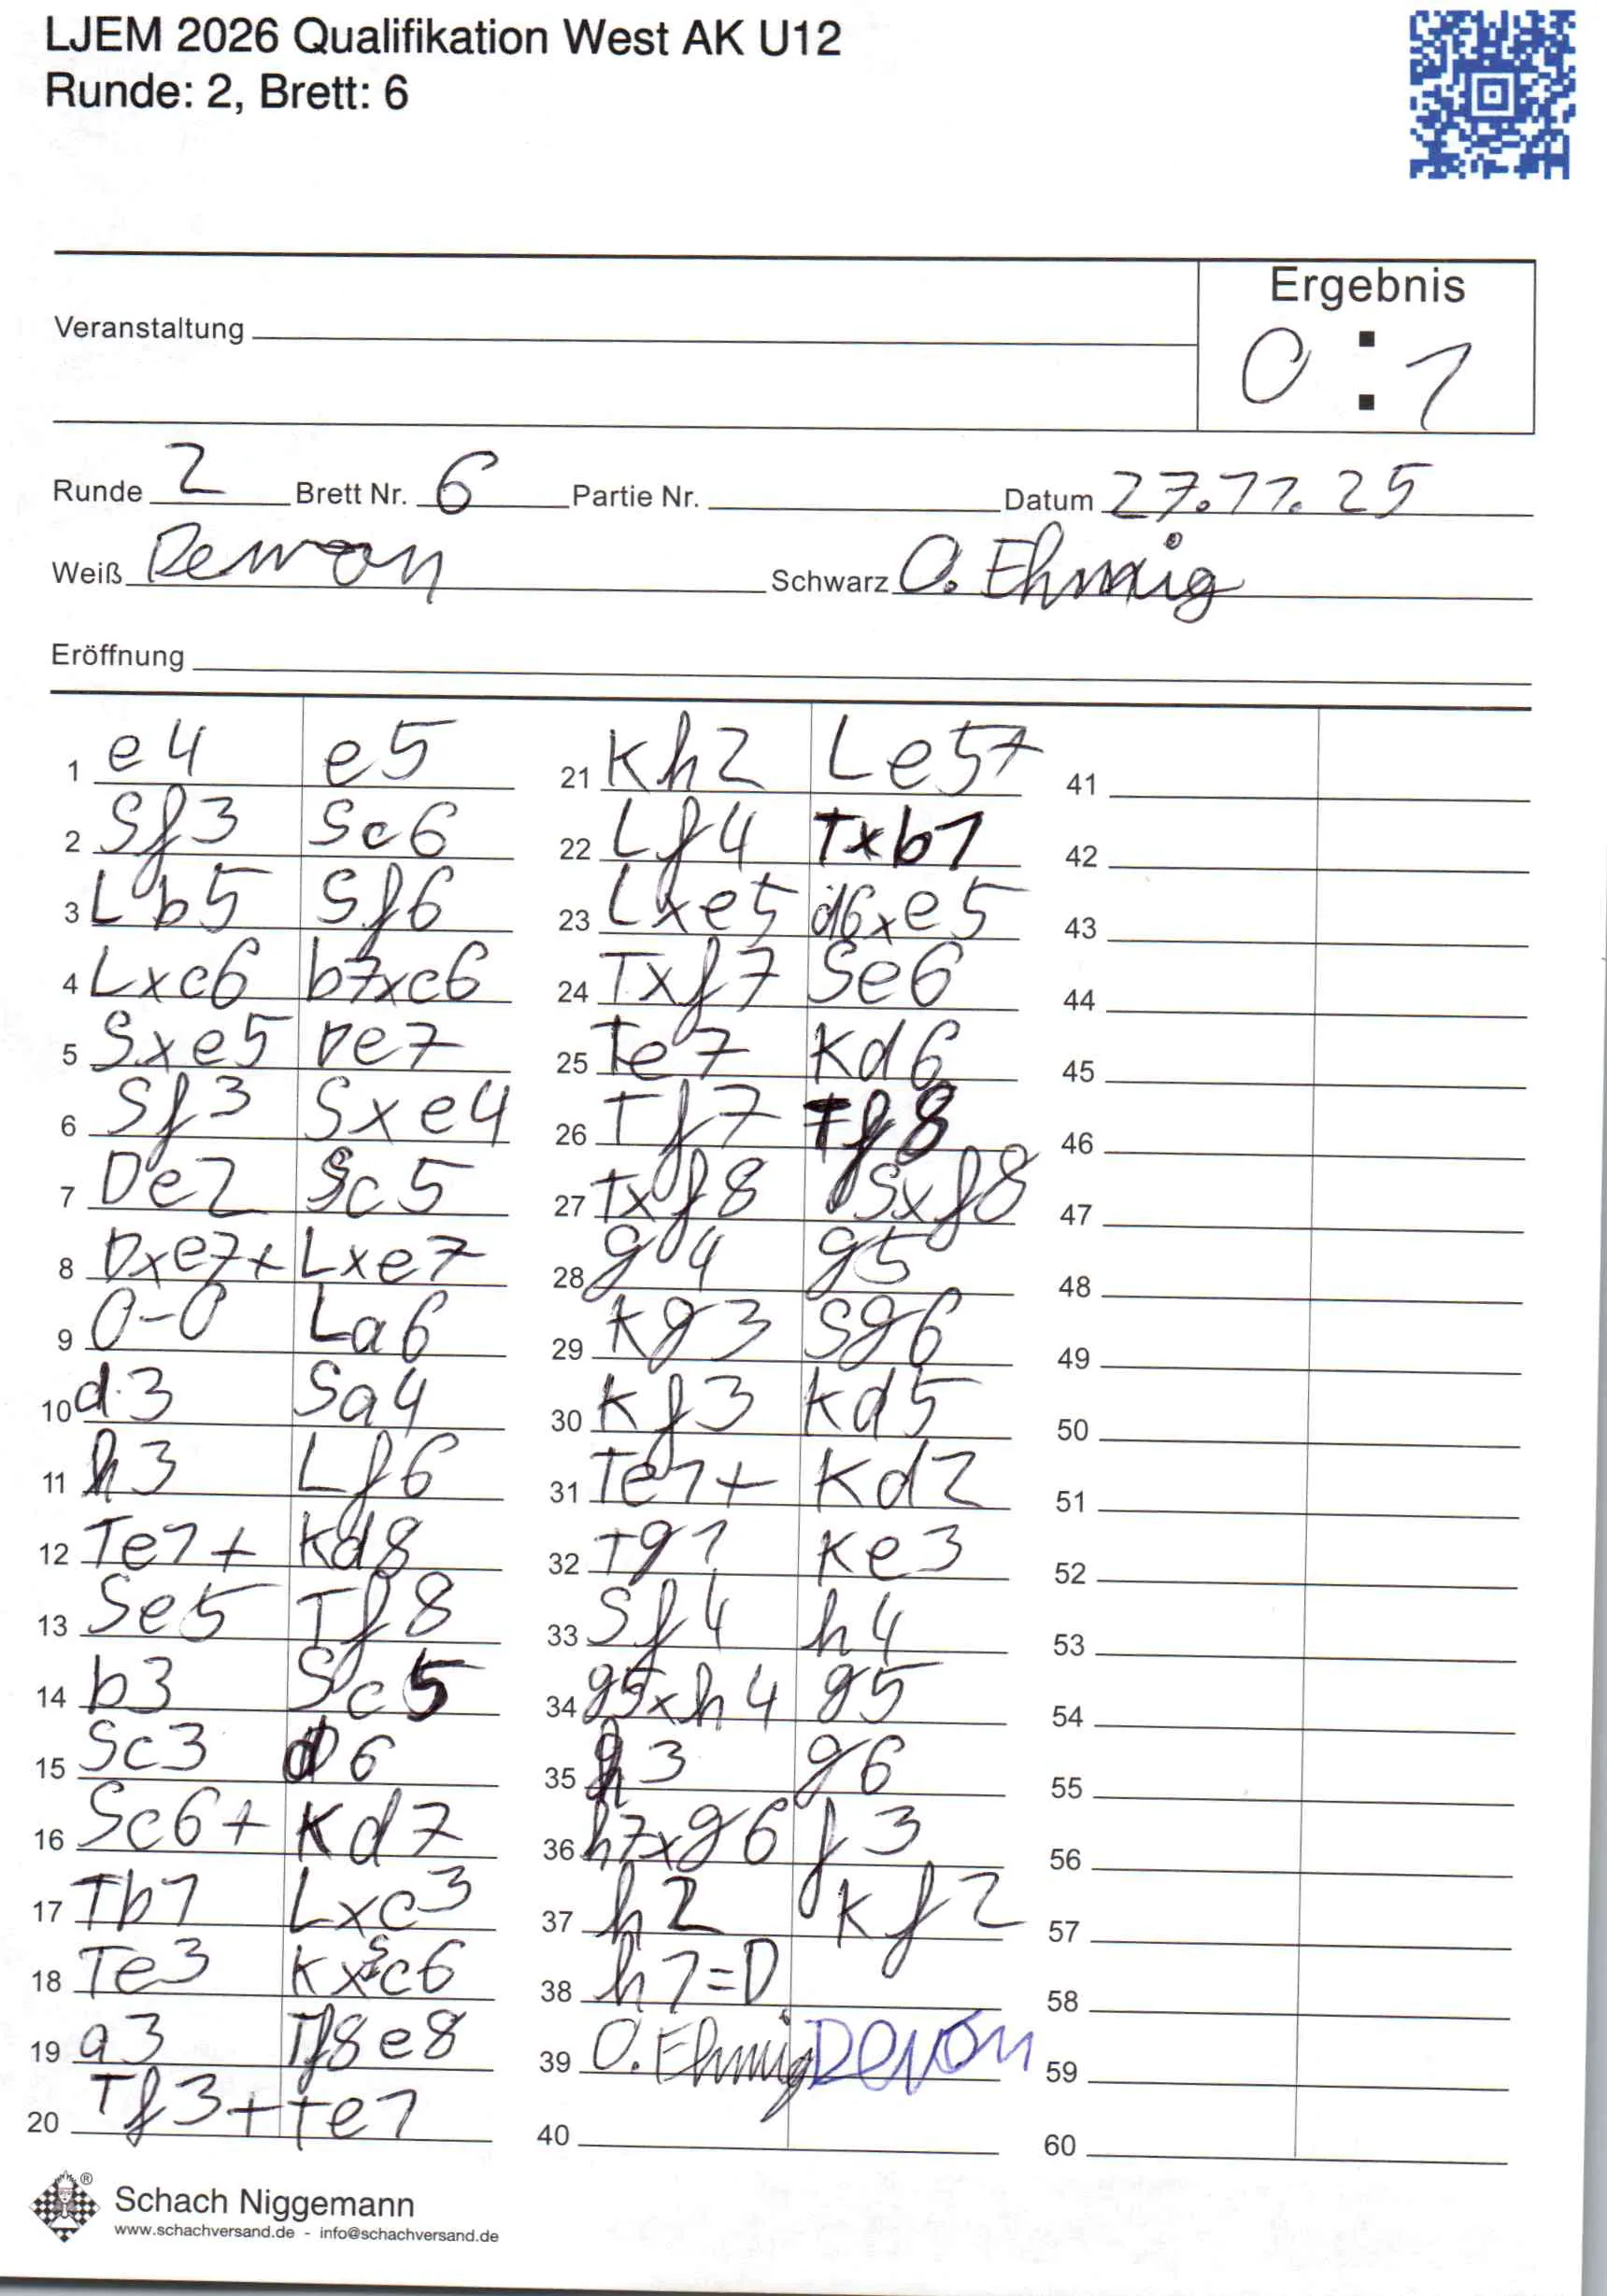 LJEM 2026 Qualifikation West AK U12
Runde: 2, Brett: 6
Ergebnis
Veranstaltung
0 : 1
Runde 2 Brett Nr. 6 Partie Nr. Datum 27.11.25
Weiß Devon Schwarz O. Ehmig
Eröffnung
1 e4 e5
2 Sf3 Sc6
3 Lb5 Sf6
4 Lxc6 b7xc6
5 Sxe5 De7
6 Sf3 Sxe4
7 De2 Sc5
8 Dxe7+ Lxe7
9 0-0 La6
10 d3 Sa4
11 h3 Lf6
12 Te1+ Kd8
13 Se5 Tf8
14 b3 Sc5
15 Sc3 d6
16 Sc6+ Kd7
17 Tb1 Lxc3
18 Te3 KxSc6
19 a3 Tf8e8
20 Tf3+ Te1
21 Kh2 Le5+
22 Lf4 Txb1
23 Lxe5 d6xe5
24 Txf7 Se6
25 Te7 Kd6
26 Tf7 Tf8
27 Txf8 Sxf8
28 g4 g5
29 Kg3 Sg6
30 Kf3 Kd5
31 Te1+ Kd2
32 Tg1 Ke3
33 Sf4 h4
34 g5xh4 g5
35 h3 g6
36 h7xg6 f3
37 h2 Kf2
38 h1=D
39 O. Ehmig Devon
40
41
42
43
44
45
46
47
48
49
50
51
52
53
54
55
56
57
58
59
60
®
Schach Niggemann
www.schachversand.de - info@schachversand.de